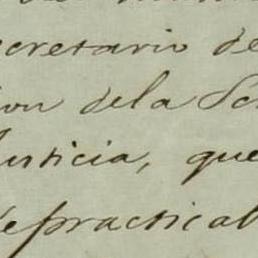 ecretario de
ion dela Se
Justicia, que
e practical